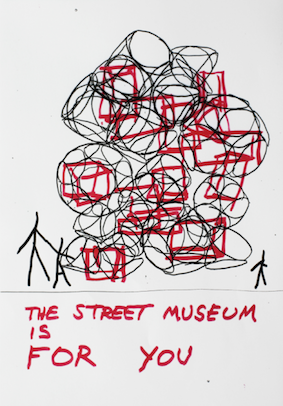 THE STREET MUSEUM
IS
FOR YOU